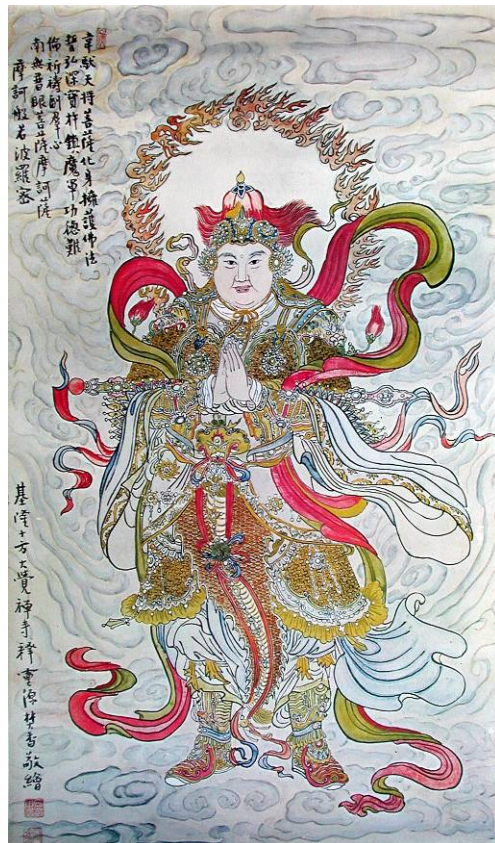 韋馱天將菩薩化身擁護佛法
誓弘深寶杵鎮魔軍功德難
倫祈禱副群心
南無普眼菩薩摩訶薩
摩訶般若波羅密
基隆十方大覺禪寺釋靈源焚香敬繪